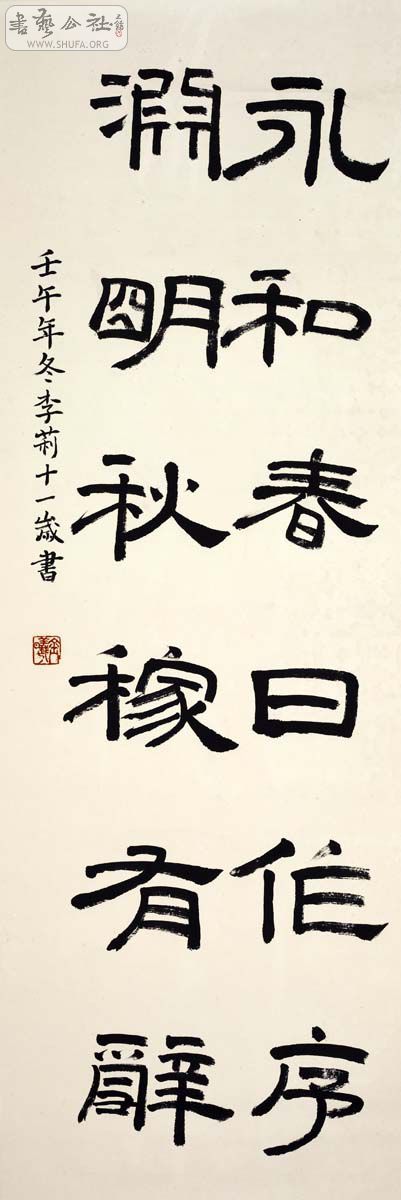 書藝公社
WWW.SHUFA.ORG
永和春日作序
淵明秋稼有辭
壬午年冬李莉十一歲書